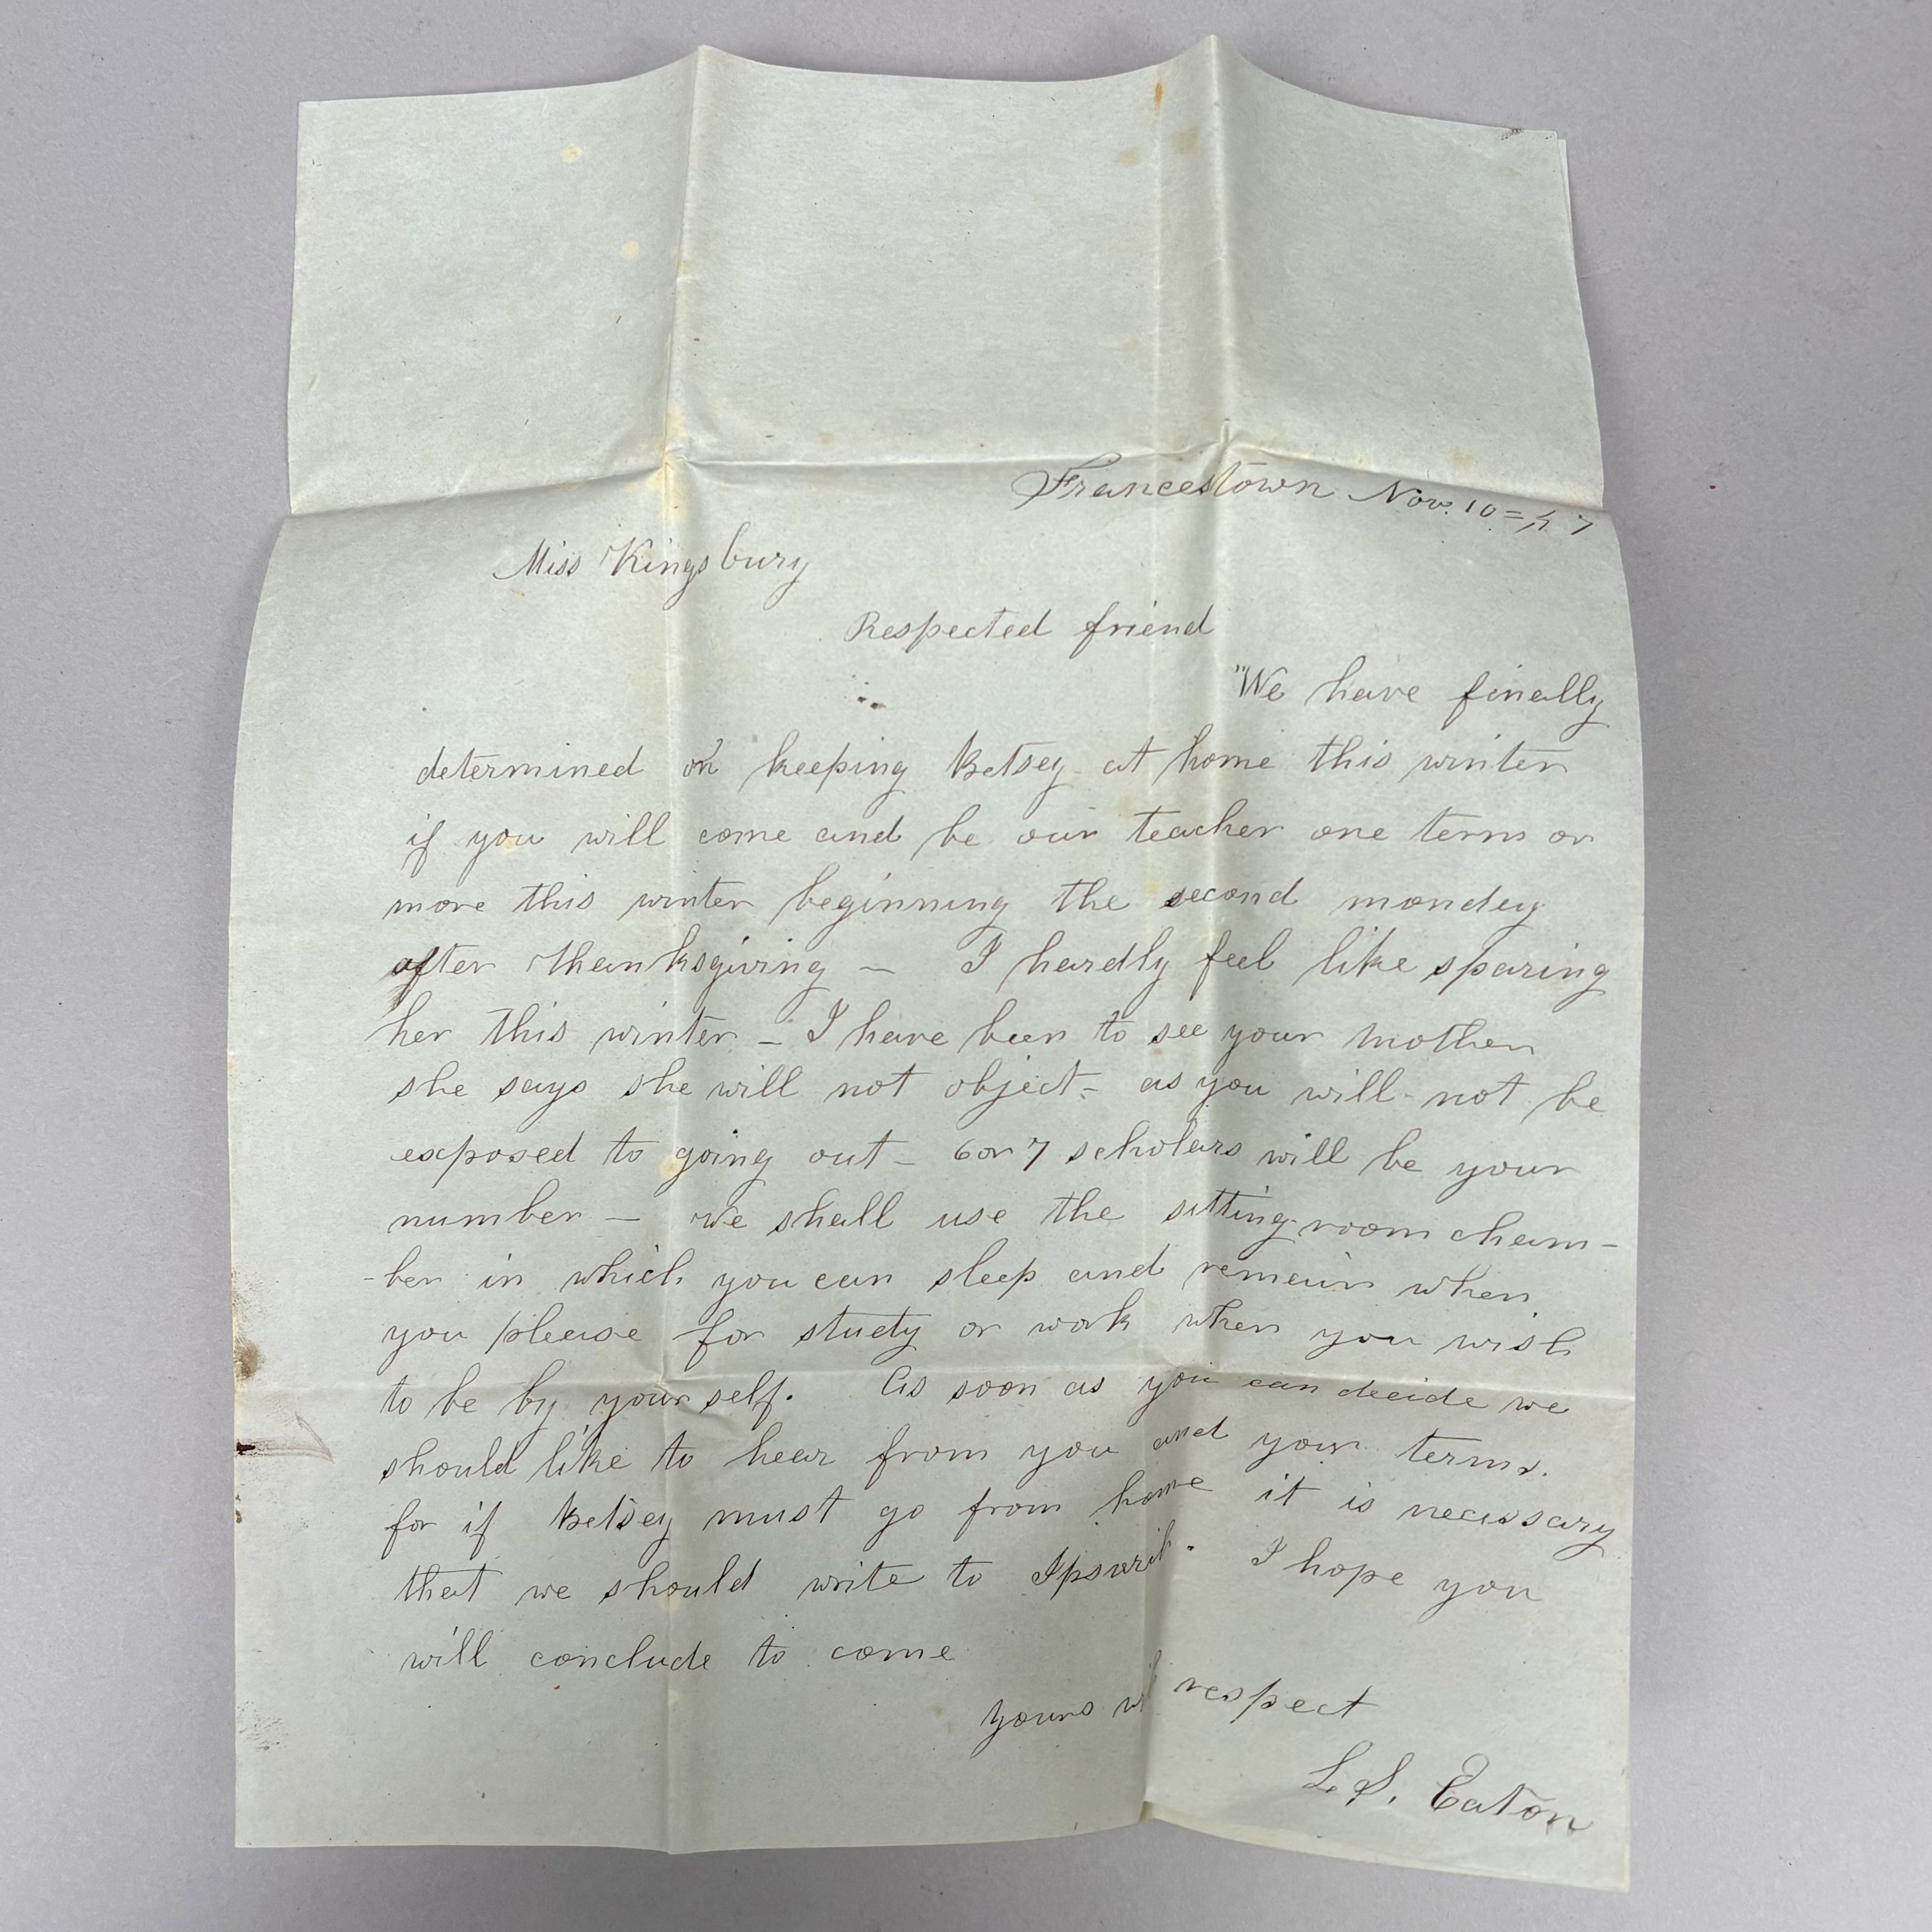 Francestown Nov. 10 = 47
Miss Kingsbury
Respected friend
We have finally
determined on keeping Betsey at home this winter
if you will come and be our teacher one term or
more this winter beginning the second monday
after thanksgiving — I hardly feel like sparing
her this winter — I have been to see your mother
she says she will not object = as you will not be
exposed to going out — 6 or 7 scholars will be your
number — we shall use the sitting room cham-
-ber in which you can sleep and remain when
you please for study or work when you wish
to be by your self. As soon as you can decide we
should like to hear from you and your terms.
for if Betsey must go from home it is necessary
that we should write to . I hope you
will conclude to come
yours respect
L. S. Eaton